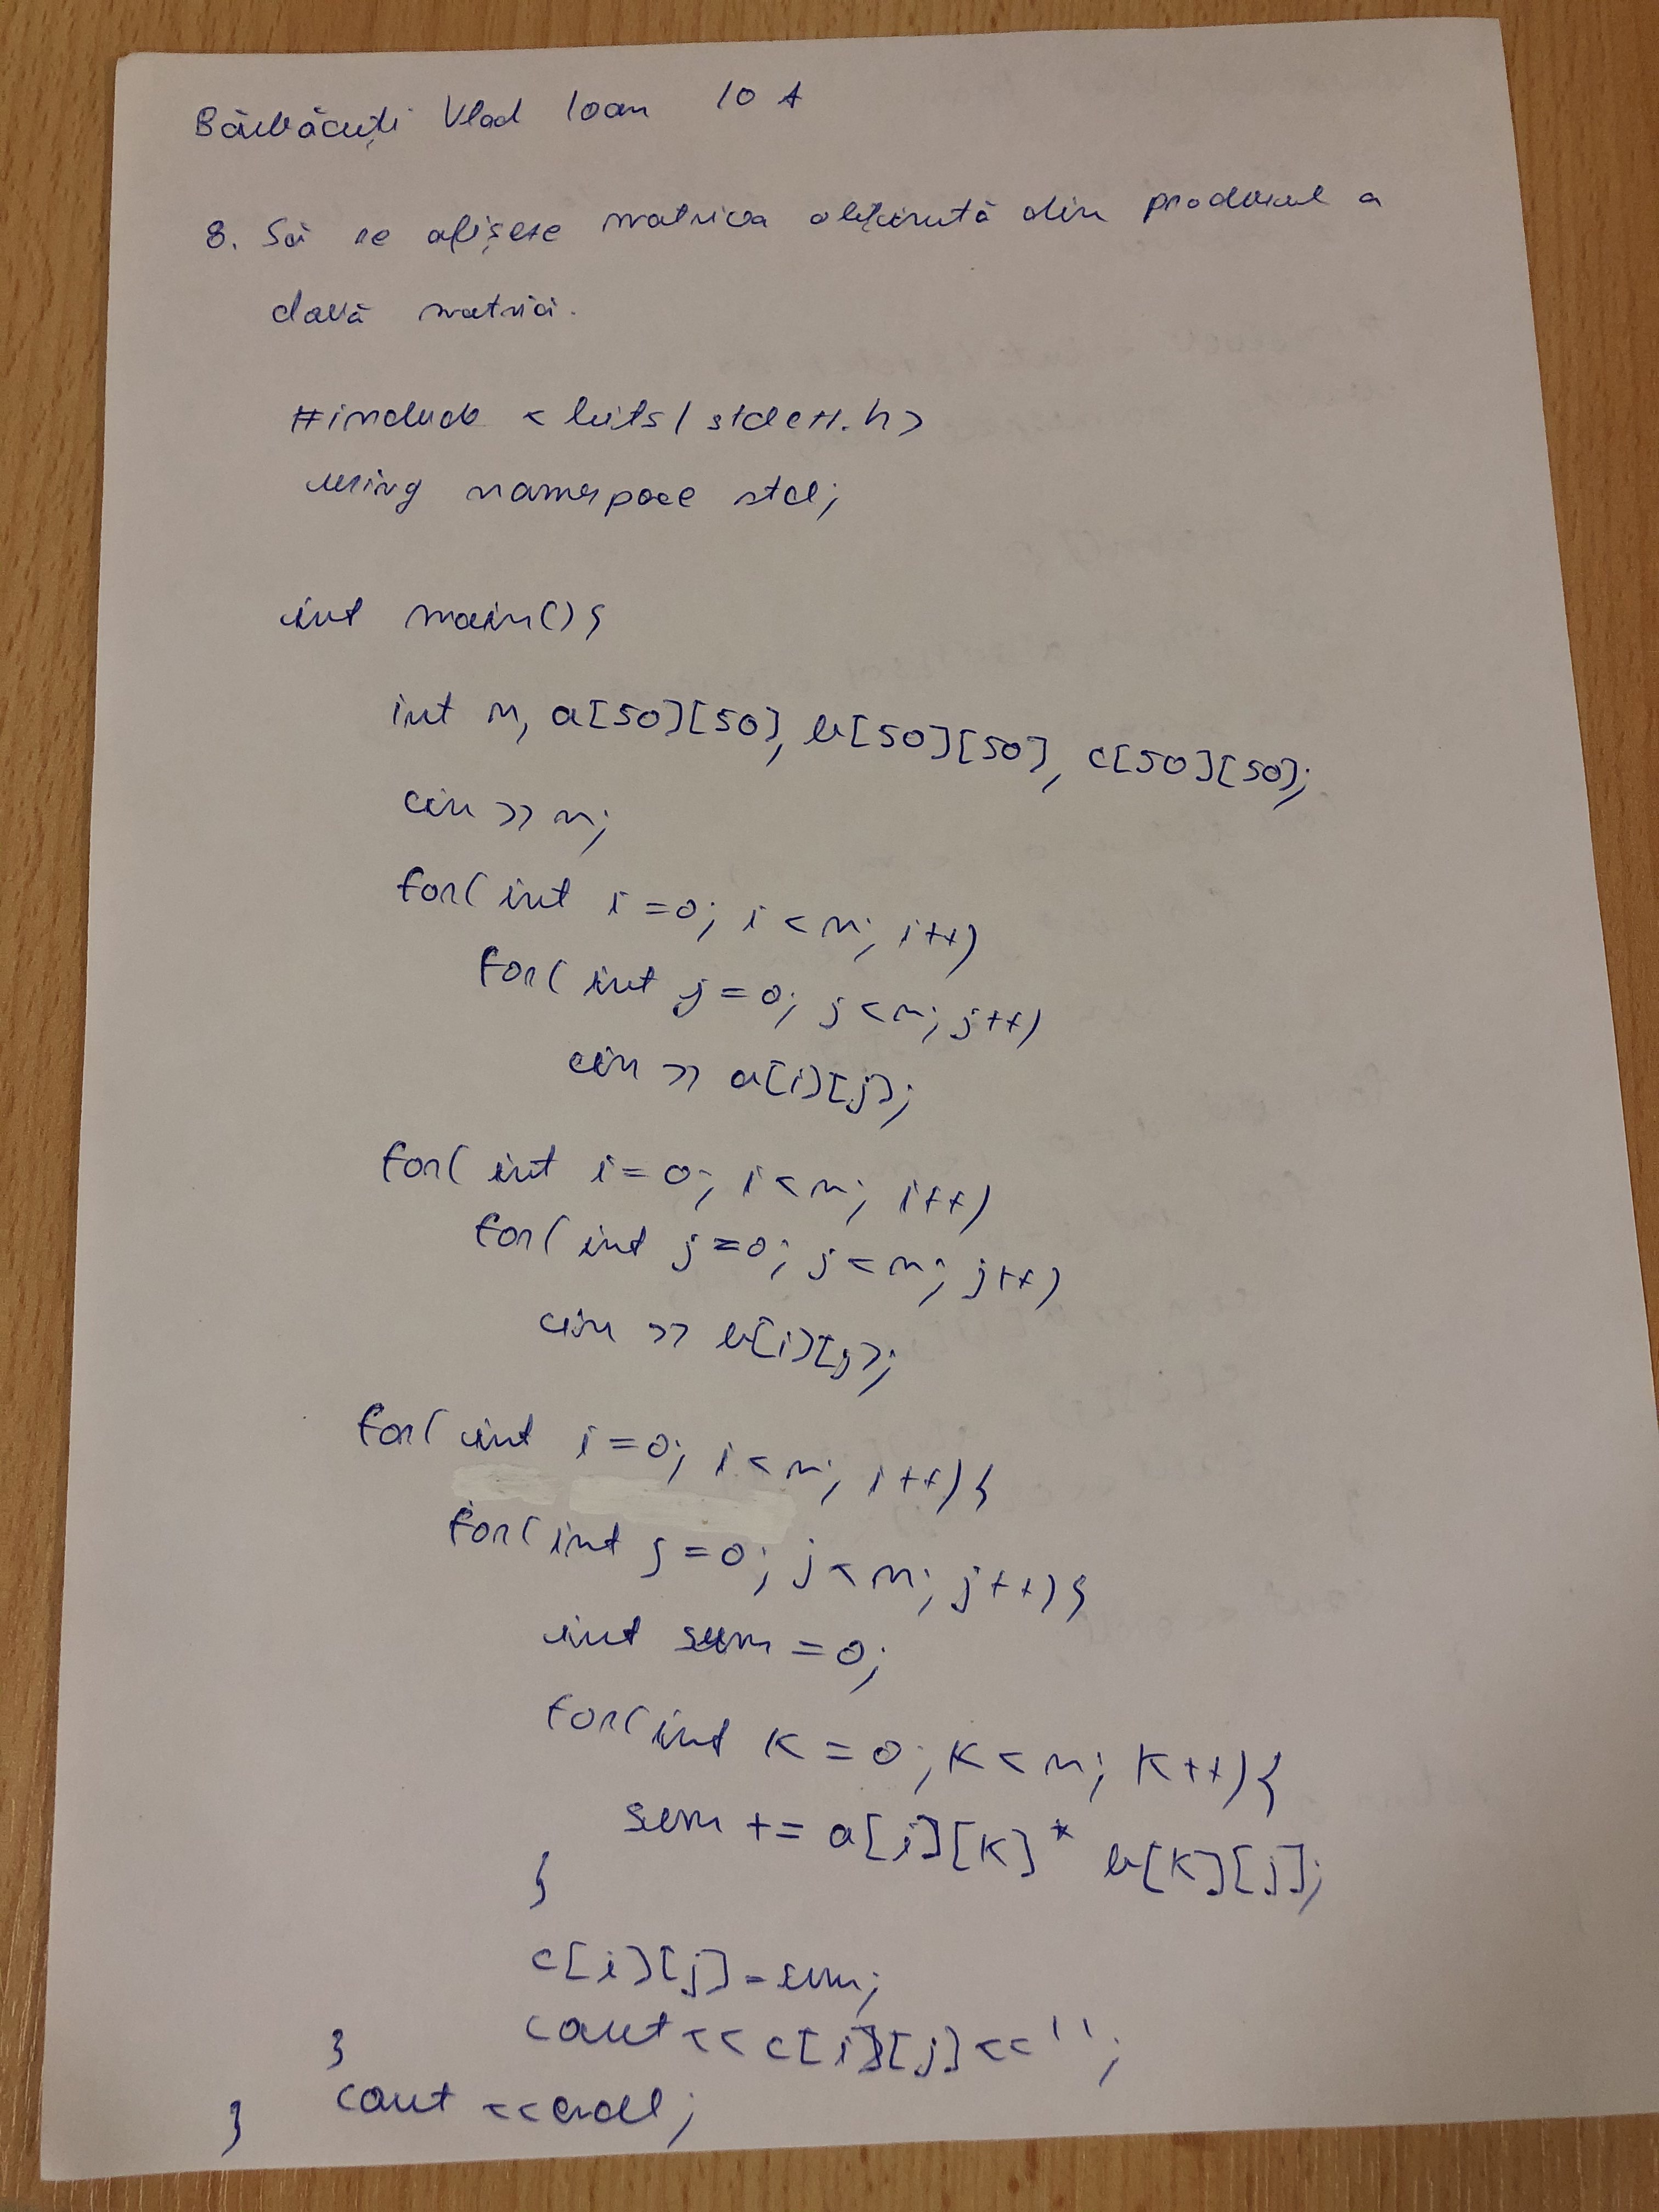 Bărbăcuți Vlad Ioan 10 A
8. Să se afișeze matricea obținută din produsul a
două matrici.
#include <bits/stdc++.h>
using namespace std;
int main(){
int n, a[50][50], b[50][50], c[50][50];
cin >> n;
for( int i=0; i<n; i++)
for( int j=0; j<n; j++)
cin >> a[i][j];
for( int i=0; i<n; i++)
for( int j=0; j<n; j++)
cin >> b[i][j];
for( int i=0; i<n; i++){
for( int j=0; j<n; j++){
int sum=0;
for(int k=0; k<n; k++){
sum += a[i][k]* b[k][j];
}
c[i][j]=sum;
cout<<c[i][j]<<' ';
}
cout <<endl;
}